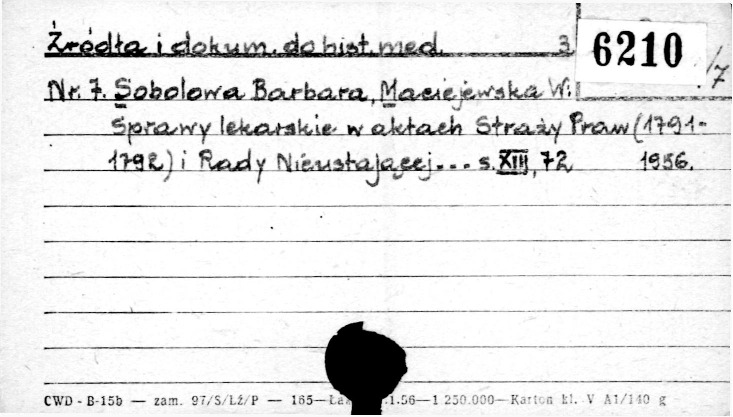 Źródła i dokum. do hist. med. 3
6210
/7
Nr. 7. Sobolowa Barbara, Maciejewska W:
Sprawy lekarskie w aktach Straży Praw (1791-
1792) i Rady Nieustającej... s. XIII, 72 1956.
CWD - B-15b — zam. 97/S/Lź/P — 165— .1.56—1 250.000—Karton kl. V A1/140 g